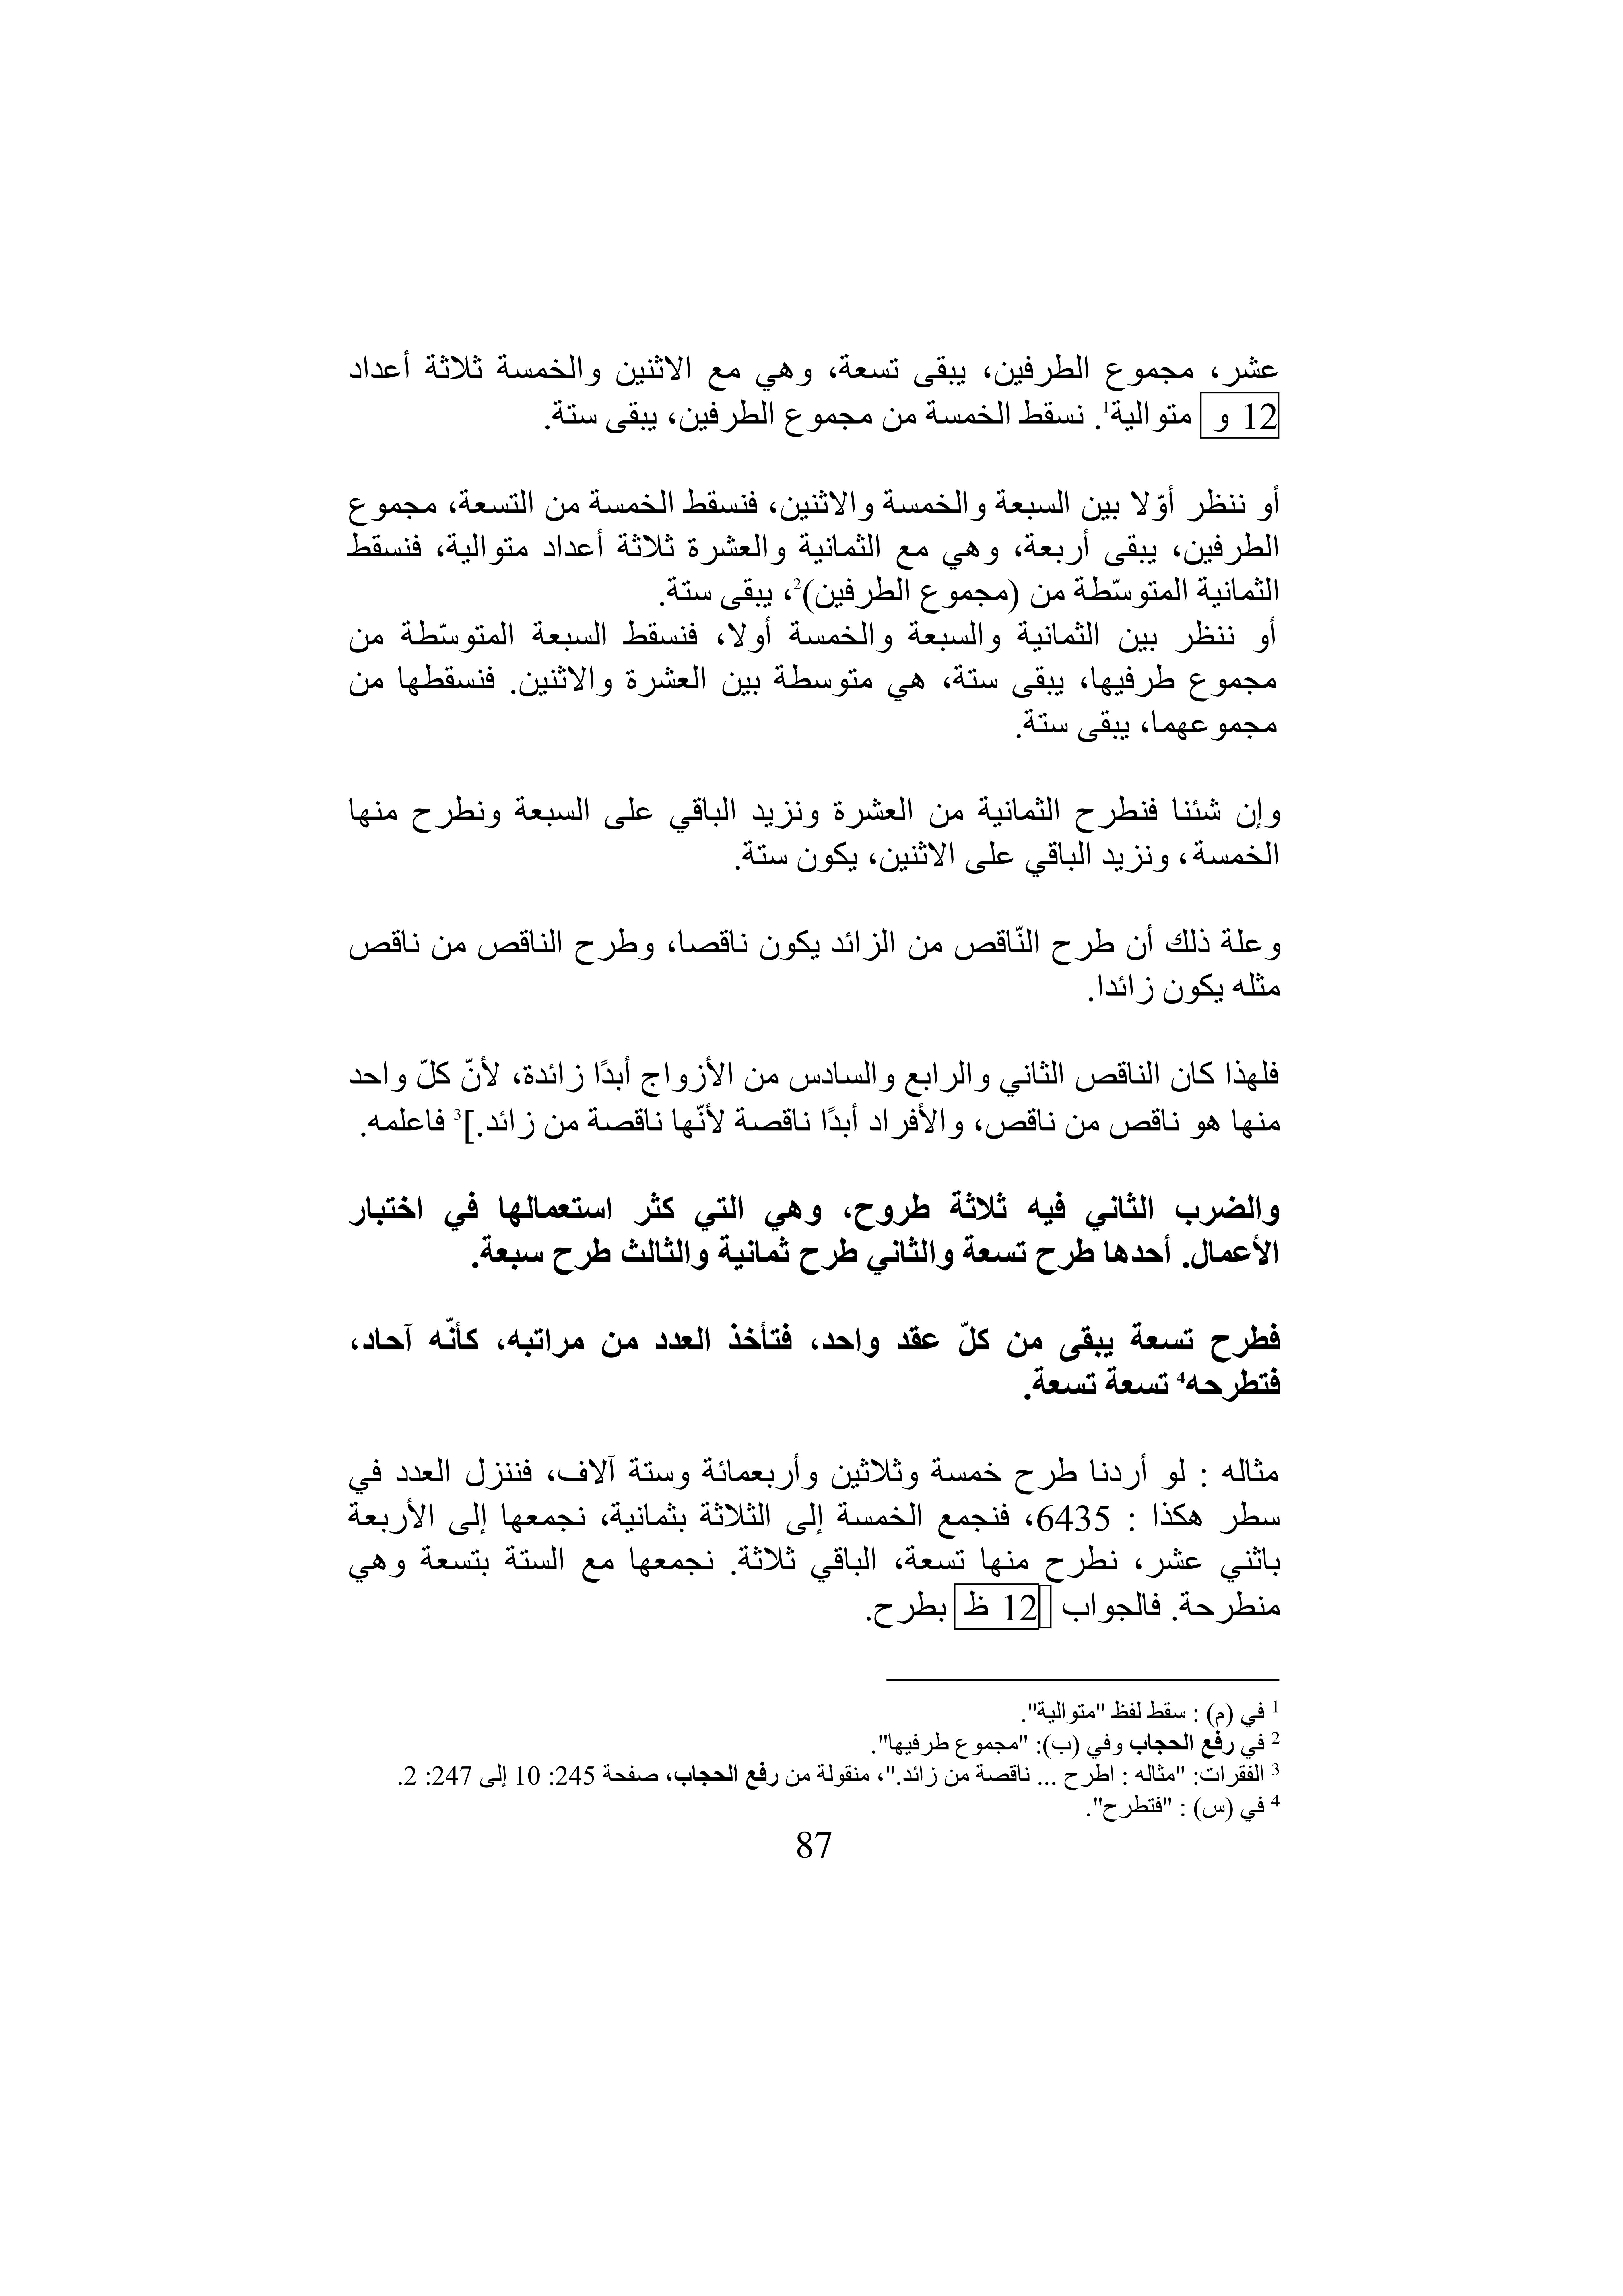 عشر، مجموع الطرفين، يبقى تسعة، وهي مع الاثنين والخمسة ثلاثة أعداد
12 و متوالية1. نسقط الخمسة من مجموع الطرفين، يبقى ستة.
أو ننظر أوّلا بين السبعة والخمسة والاثنين، فنسقط الخمسة من التسعة، مجموع
الطرفين، يبقى أربعة، وهي مع الثمانية والعشرة ثلاثة أعداد متوالية، فنسقط
الثمانية المتوسّطة من (مجموع الطرفين)2، يبقى ستة.
أو ننظر بين الثمانية والسبعة والخمسة أولا، فنسقط السبعة المتوسّطة من
مجموع طرفيها، يبقى ستة، هي متوسطة بين العشرة والاثنين. فنسقطها من
مجموعهما، يبقى ستة.
وإن شئنا فنطرح الثمانية من العشرة ونزيد الباقي على السبعة ونطرح منها
الخمسة، ونزيد الباقي على الاثنين، يكون ستة.
وعلة ذلك أن طرح النّاقص من الزائد يكون ناقصا، وطرح الناقص من ناقص
مثله يكون زائدا.
فلهذا كان الناقص الثاني والرابع والسادس من الأزواج أبدًا زائدة، لأنّ كلّ واحد
منها هو ناقص من ناقص، والأفراد أبدًا ناقصة لأنّها ناقصة من زائد.]3 فاعلمه.
والضرب الثاني فيه ثلاثة طروح، وهي التي كثر استعمالها في اختبار
الأعمال. أحدها طرح تسعة والثاني طرح ثمانية والثالث طرح سبعة.
فطرح تسعة يبقى من كلّ عقد واحد، فتأخذ العدد من مراتبه، كأنّه آحاد،
فتطرحه4 تسعة تسعة.
مثاله : لو أردنا طرح خمسة وثلاثين وأربعمائة وستة آلاف، فننزل العدد في
سطر هكذا : 6435، فنجمع الخمسة إلى الثلاثة بثمانية، نجمعها إلى الأربعة
باثني عشر، نطرح منها تسعة، الباقي ثلاثة. نجمعها مع الستة بتسعة وهي
منطرحة. فالجواب 12 ظ بطرح.
1 في (م) : سقط لفظ "متوالية".
2 في رفع الحجاب وفي (ب): "مجموع طرفيها".
3 الفقرات: "مثاله : اطرح ... ناقصة من زائد."، منقولة من رفع الحجاب، صفحة 245: 10 إلى 247: 2.
4 في (س) : "فتطرح".
87